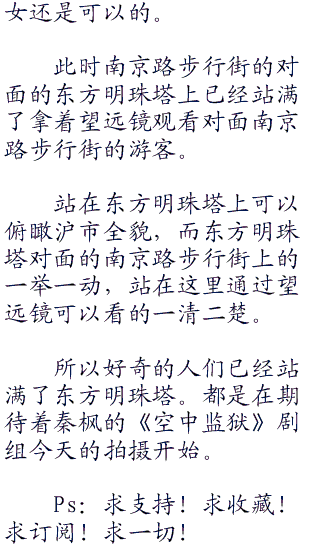 女还是可以的。
此时南京路步行街的对
面的东方明珠塔上已经站满
了拿着望远镜观看对面南京
路步行街的游客。
站在东方明珠塔上可以
俯瞰沪市全貌，而东方明珠
塔对面的南京路步行街上的
一举一动，站在这里通过望
远镜可以看的一清二楚。
所以好奇的人们已经站
满了东方明珠塔。都是在期
待着秦枫的《空中监狱》剧
组今天的拍摄开始。
Ps：求支持！求收藏！
求订阅！求一切！